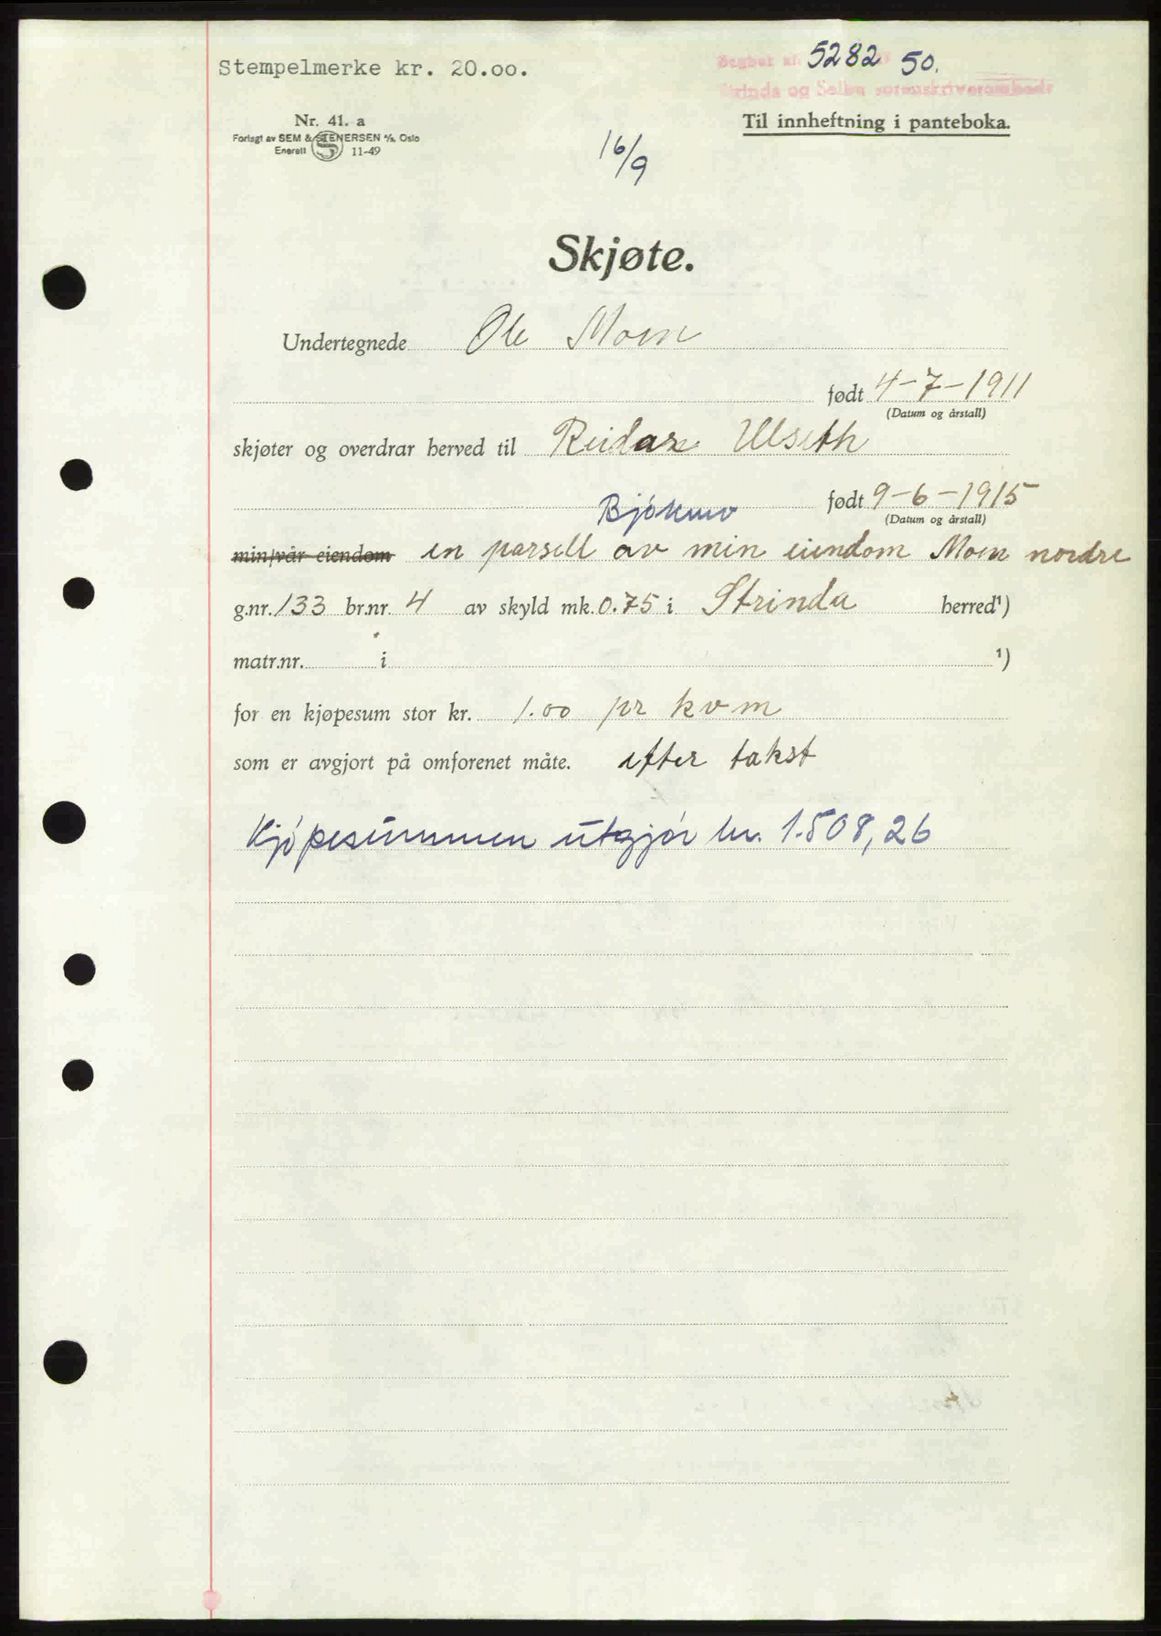 Stempelmerke kr. 20.oo.
Dagbok nr. 5282 50.
Strinda og Selbu sorenskriverembede
Nr. 41. a
Forlagt av SEM & STENERSEN A/S, Oslo
Enerett S 11-49
Til innheftning i panteboka.
16/9
Skjøte.
Undertegnede Ole Moen
født 4-7-1911
(Datum og årstall)
skjøter og overdrar herved til Reidar Ulseth
født 9-6-1915
(Datum og årstall)
min/vår eiendom en parsell av min eiendom Moen nordre
g.nr. 133 br.nr. 4 av skyld mk. 0.75 i Strinda herred¹)
matr.nr. i ¹)
for en kjøpesum stor kr. 1.00 pr kvm
som er avgjort på omforenet måte. efter takst
Kjøpesummen utgjør kr. 1.508,26